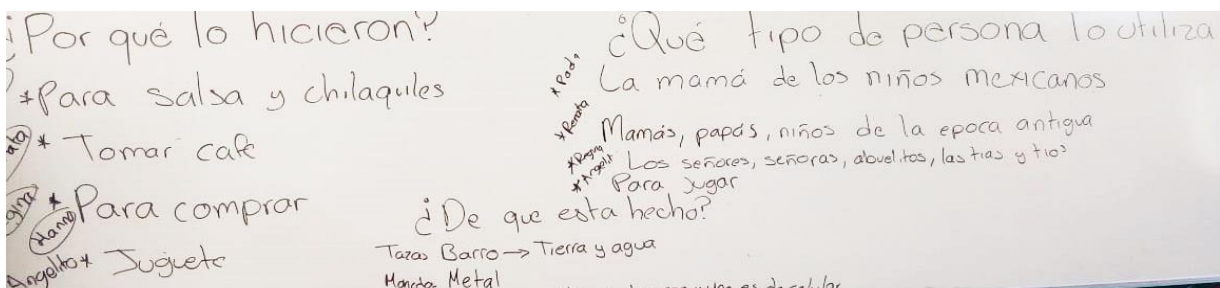 ¿Por qué lo hicieron?
*Para salsa y chilaquiles
* Tomar cafe
* Para comprar
Hanna
Angelito* Juguete
¿Qué tipo de persona lo utiliza
La mamá de los niños mexicanos
*Renata Mamás, papás, niños de la epoca antigua
*Regina Los señores, señoras, abuelitos, las tias y tios
*Angelit Para jugar
¿De que esta hecho?
Tazas Barro → Tierra y agua
Moneda Metal